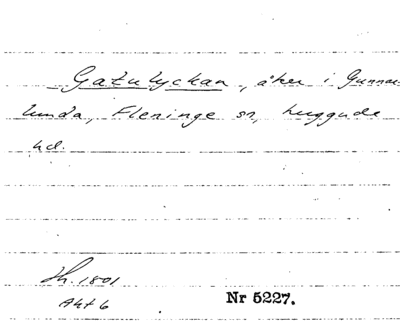 Gatulyckan, åker i Gunnar-
lunda, Fleninge sn, Luggude
hd.
Sh. 1801
Akt 6
Nr 5227.